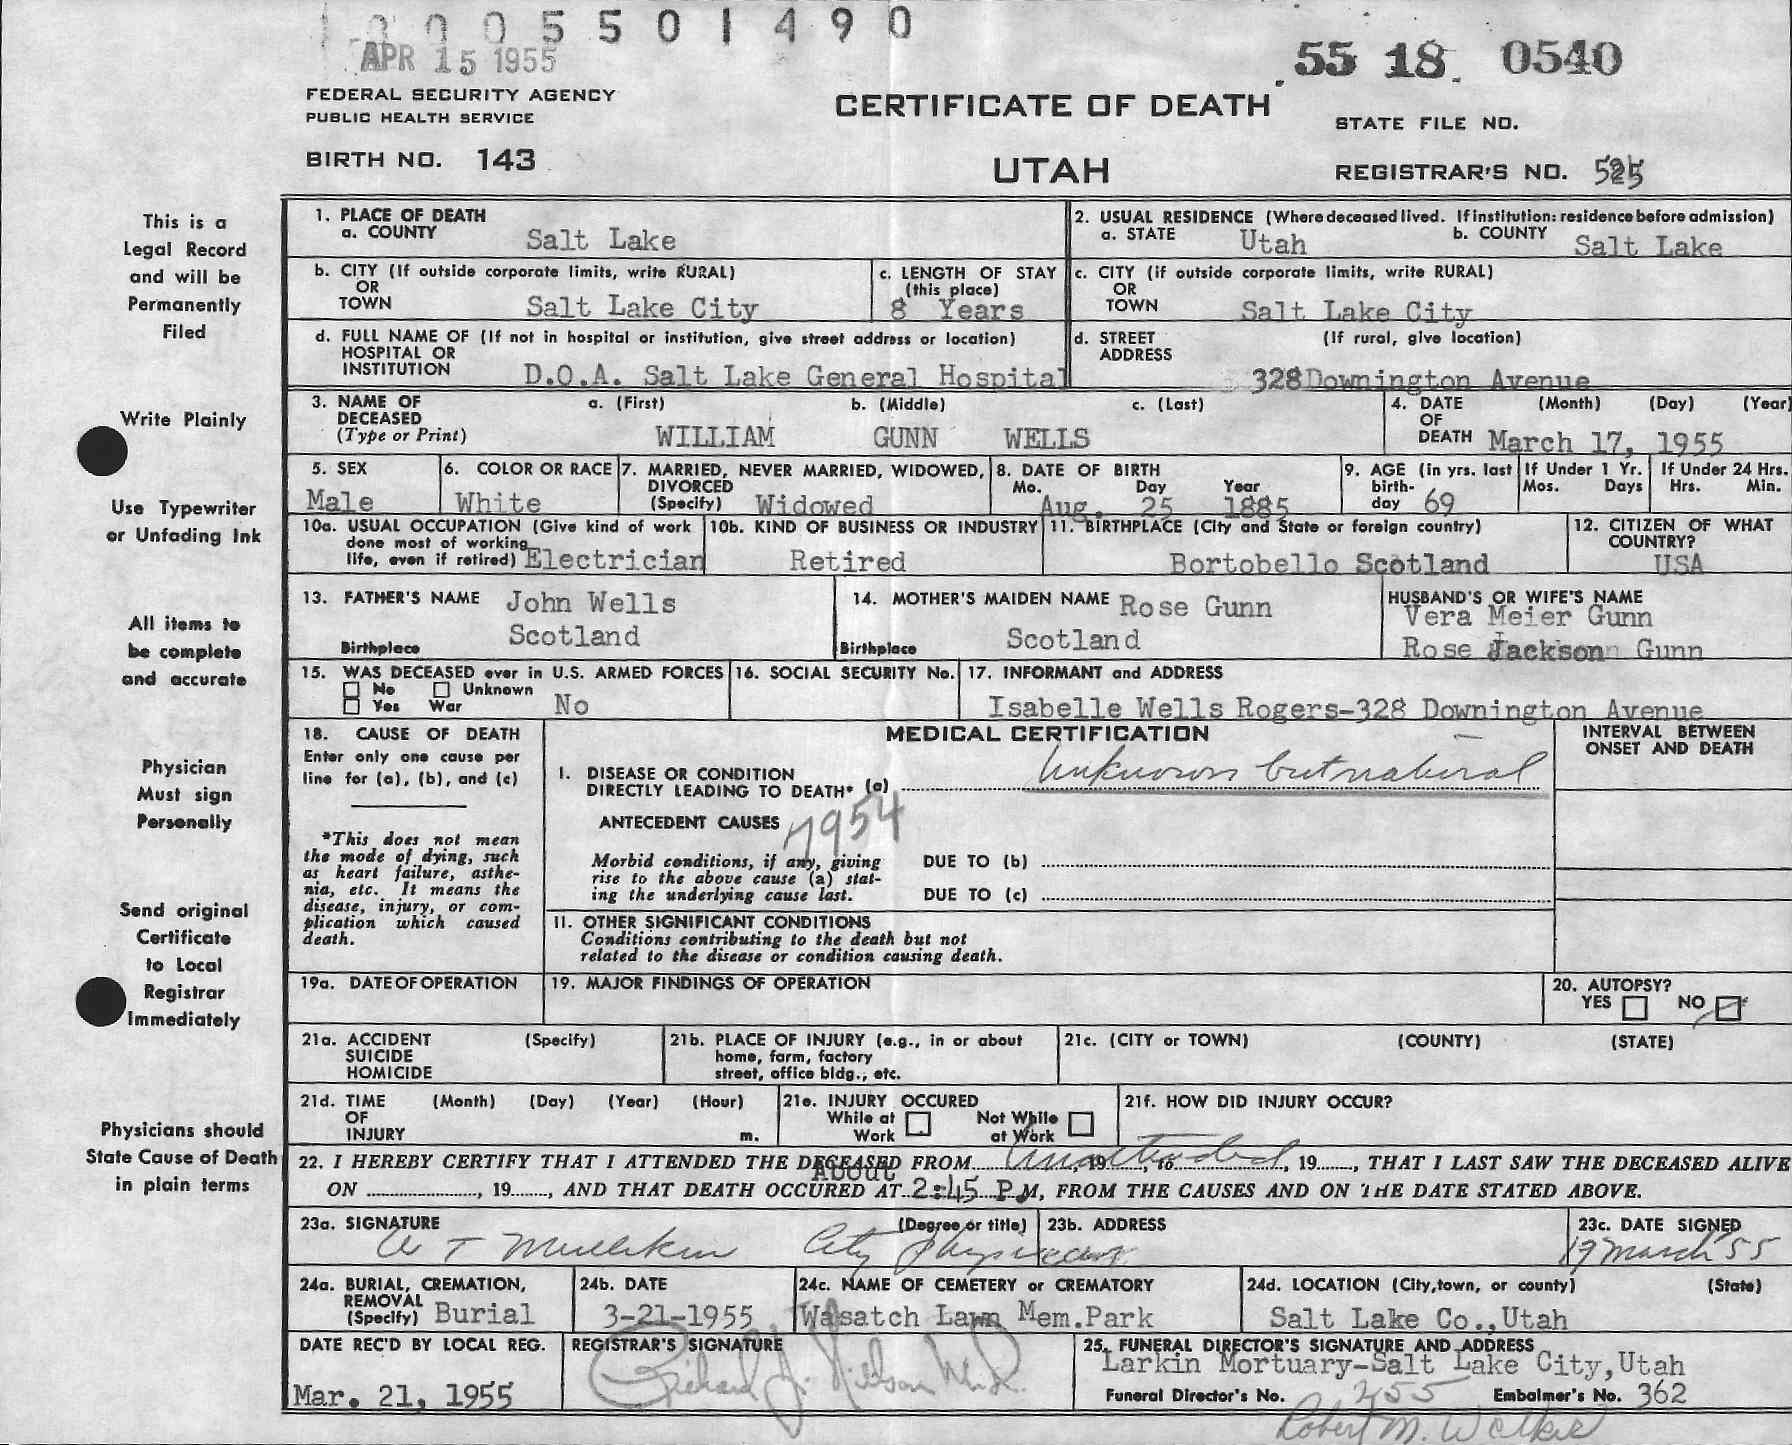 0 0 5 5 0 1 4 9 0
APR 15 1955
55 18 0540
FEDERAL SECURITY AGENCY
PUBLIC HEALTH SERVICE
CERTIFICATE OF DEATH
STATE FILE NO.
BIRTH NO. 143
UTAH
REGISTRAR'S NO. 525
This is a
Legal Record
and will be
Permanently
Filed
Write Plainly
Use Typewriter
or Unfading Ink
All items to
be complete
and accurate
Physician
Must sign
Personally
Send original
Certificate
to Local
Registrar
Immediately
Physicians should
State Cause of Death
in plain terms
1. PLACE OF DEATH
a. COUNTY Salt Lake
2. USUAL RESIDENCE (Where deceased lived. If institution: residence before admission)
a. STATE Utah b. COUNTY Salt Lake
b. CITY (If outside corporate limits, write RURAL)
OR
TOWN Salt Lake City
c. LENGTH OF STAY
(this place)
8 Years
c. CITY (if outside corporate limits, write RURAL)
OR
TOWN Salt Lake City
d. FULL NAME OF (If not in hospital or institution, give street address or location)
HOSPITAL OR
INSTITUTION D.O.A. Salt Lake General Hospital
d. STREET (If rural, give location)
ADDRESS
328 Downington Avenue
3. NAME OF a. (First) b. (Middle) c. (Last)
DECEASED
(Type or Print) WILLIAM GUNN WELLS
4. DATE (Month) (Day) (Year)
OF
DEATH March 17, 1955
5. SEX
Male
6. COLOR OR RACE
White
7. MARRIED, NEVER MARRIED, WIDOWED,
DIVORCED
(Specify) Widowed
8. DATE OF BIRTH
Mo. Day Year
Aug. 25 1885
9. AGE (in yrs. last
birth-
day 69
If Under 1 Yr.
Mos. Days
If Under 24 Hrs.
Hrs. Min.
10a. USUAL OCCUPATION (Give kind of work
done most of working
life, even if retired) Electrician
10b. KIND OF BUSINESS OR INDUSTRY
Retired
11. BIRTHPLACE (City and State or foreign country)
Bortobello Scotland
12. CITIZEN OF WHAT
COUNTRY?
USA
13. FATHER'S NAME John Wells
Birthplace Scotland
14. MOTHER'S MAIDEN NAME Rose Gunn
Birthplace Scotland
HUSBAND'S OR WIFE'S NAME
Vera Meier Gunn
Rose Jackson Gunn
15. WAS DECEASED ever in U.S. ARMED FORCES
No Unknown
Yes War No
16. SOCIAL SECURITY No.
17. INFORMANT and ADDRESS
Isabelle Wells Rogers-328 Downington Avenue
18. CAUSE OF DEATH
Enter only one cause per
line for (a), (b), and (c)
*This does not mean
the mode of dying, such
as heart failure, asthe-
nia, etc. It means the
disease, injury, or com-
plication which caused
death.
MEDICAL CERTIFICATION
INTERVAL BETWEEN
ONSET AND DEATH
I. DISEASE OR CONDITION
DIRECTLY LEADING TO DEATH* (a) Unknown but natural
ANTECEDENT CAUSES 7954
Morbid conditions, if any, giving
rise to the above cause (a) stat-
ing the underlying cause last.
DUE TO (b)
DUE TO (c)
II. OTHER SIGNIFICANT CONDITIONS
Conditions contributing to the death but not
related to the disease or condition causing death.
19a. DATE OF OPERATION
19. MAJOR FINDINGS OF OPERATION
20. AUTOPSY?
YES NO
21a. ACCIDENT (Specify)
SUICIDE
HOMICIDE
21b. PLACE OF INJURY (e.g., in or about
home, farm, factory
street, office bldg., etc.
21c. (CITY or TOWN) (COUNTY) (STATE)
21d. TIME (Month) (Day) (Year) (Hour)
OF
INJURY m.
21e. INJURY OCCURED
While at Not While
Work at Work
21f. HOW DID INJURY OCCUR?
22. I HEREBY CERTIFY THAT I ATTENDED THE DECEASED FROM Unattended, 19 , to , 19 , THAT I LAST SAW THE DECEASED ALIVE
About
ON , 19 , AND THAT DEATH OCCURED AT 2:45 P.M, FROM THE CAUSES AND ON THE DATE STATED ABOVE.
23a. SIGNATURE (Degree or title)
W T Mullikin City Physician
23b. ADDRESS
23c. DATE SIGNED
19 March 55
24a. BURIAL, CREMATION,
REMOVAL
(Specify) Burial
24b. DATE
3-21-1955
24c. NAME OF CEMETERY or CREMATORY
Wasatch Lawn Mem.Park
24d. LOCATION (City, town, or county) (State)
Salt Lake Co.,Utah
DATE REC'D BY LOCAL REG.
Mar. 21, 1955
REGISTRAR'S SIGNATURE
Richard J. Nelson M.D.
25. FUNERAL DIRECTOR'S SIGNATURE AND ADDRESS
Larkin Mortuary-Salt Lake City,Utah
Funeral Director's No. 255 Embalmer's No. 362
Robert M. Welkie